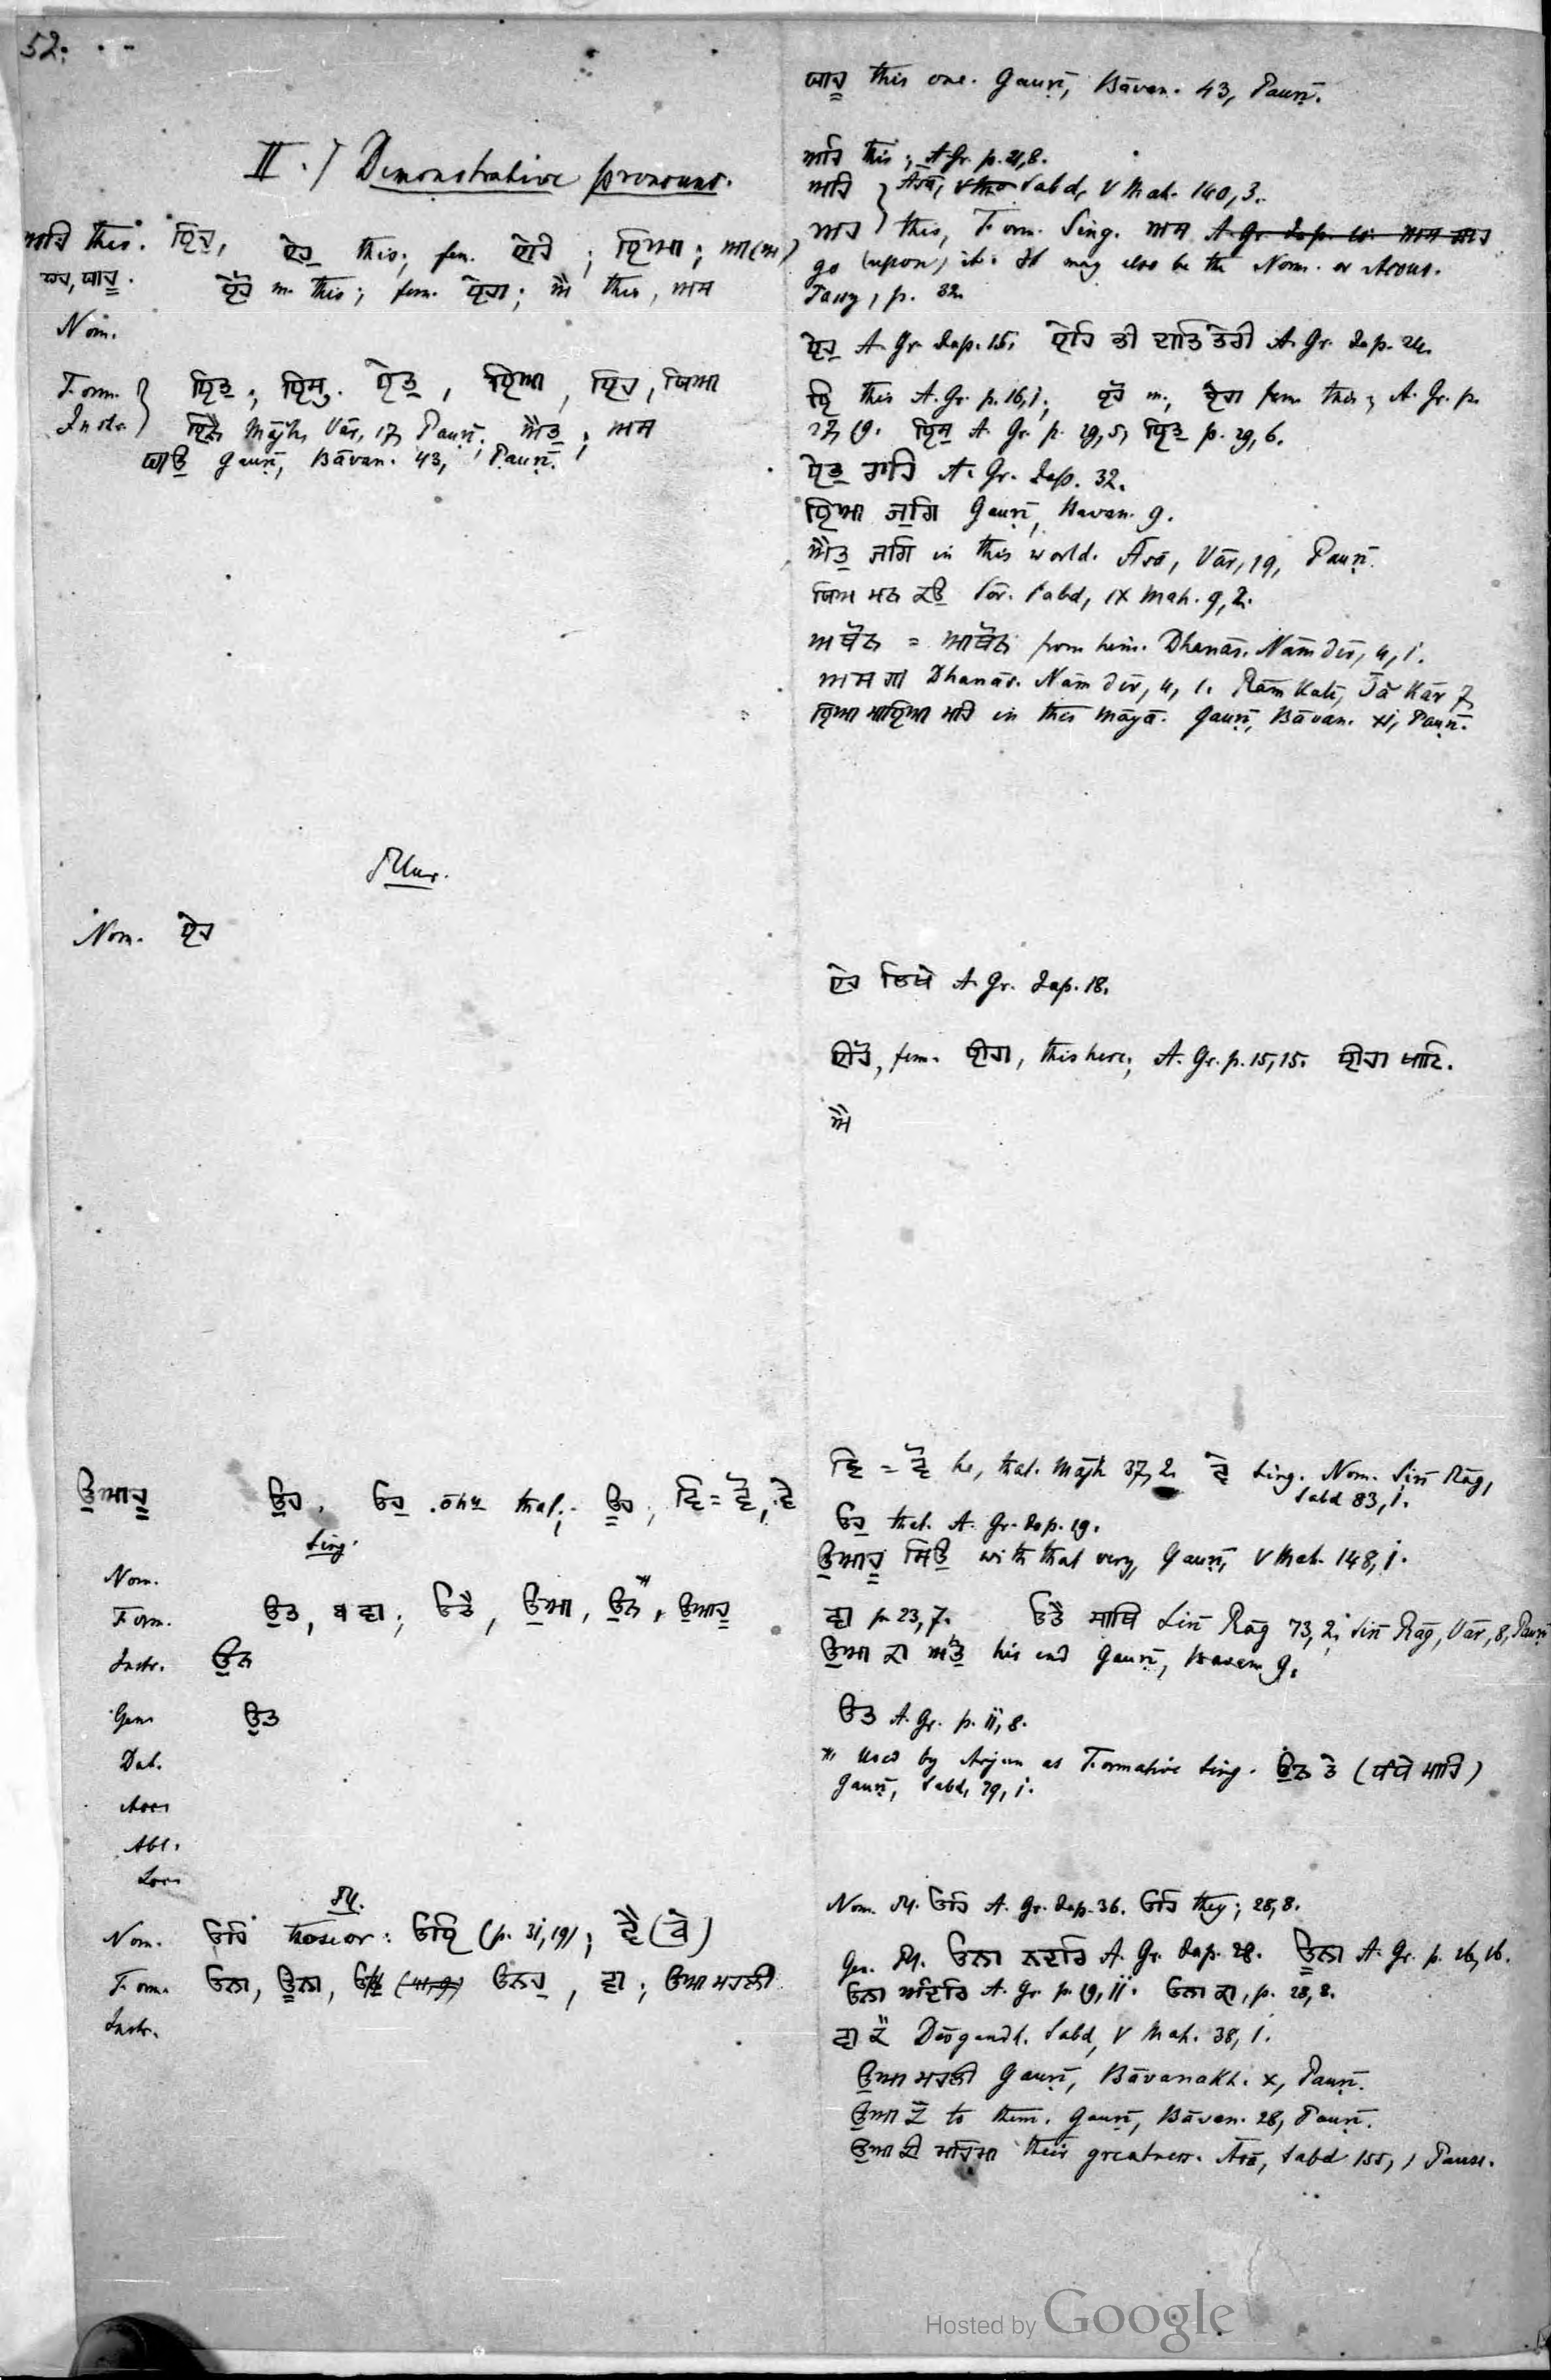 52.
II.) Demonstrative pronouns.
ਅਹਿ this. ਇਹੁ, ਏਹੁ this; fem. ਏਹ; ਇਆ;
ਯਹ, ਯਾਹੂ. ਏਹੋ m. this; fem. ਏਹਾ; ਐ this, ਅਸ
Nom.
Form. ਇਤੁ; ਇਸੁ. ਏਤੁ, ਇਆ, ਇਹ,
Instr. Mājh, Vār, 17, Pauṛī; ਐਤੁ; ਅਸ
Gauṛī, Bāvan. 43, Pauṛī.
Plur.
Nom. ਏਹ
ਉਆਹੂ ਉਹ, ਓਹੁ ōhu that; ਊਹ;
Sing.
Nom.
Form. ਉਤ, ਵਾ; ਓਤੈ, ਉਆ, ਉਨ, ਉਆਹੂ
Instr. ਉਨ
Gen. ਉਤ
Dat.
Acc.
Abl.
Loc.
Pl.
Nom. ਓਹਿ those or: ਓਇ (p. 31,19);
Form. ਓਨਾ, ਊਨਾ, ਓਨਹੁ, ਵਾ; ਉਆ ਮਹਲੀ
Instr.
ਯਾਹੂ this one. Gauṛī, Bāvan. 43, Pauṛī.
ਅਹਿ this; A. Gr. p. 21,8.
ਅਹਿ Āsā, Sabd, V Mah. 140,3.
ਅਹ this, Form. Sing. ਅਸ
go (upon) it. It may also be the Nom. or Accus.
p. 32.
ਏਹੁ A. Gr. Jap. 15. ਏਹਿ ਭੀ ਦਾਤਿ ਤੇਰੀ A. Gr. Jap. 24.
ਇ this A. Gr. p. 16,1; ਏਹੋ m., ਏਹਾ fem. this; A. Gr. p.
27, 19. ਇਸੁ A. Gr. p. 29,5, ਇਤੁ p. 29,6.
ਏਤੁ ਰਾਹਿ A. Gr. Jap. 32.
ਇਆ ਜੁਗਿ Gauṛī, Bavan. 9.
ਐਤੁ ਜਗਿ in this world. Āsā, Vār, 19, Pauṛī.
ਮਨ ਕਉ Sōr. Sabd, IX Mah. 9,2.
from him. Dhanās. Nāmdēv, 4,1.
ਅਸ ਗਾ Dhanās. Nāmdēv, 4, 1. Rām Kalī,
ਇਆ ਮਾਇਆ ਮਹਿ in this māyā. Gauṛī, Bāvan. XI, Pauṛī.
ਏਹ ਲਿਖੇ A. Gr. Jap. 18.
ਈਹੋ, fem. ਈਹਾ, this here; A. Gr. p. 15,15. ਈਹਾ ਖਾਟਿ.
ਐ
he, that. Mājh 37,2. Sing. Nom. Sirī Rāg,
Sabd 83,1.
ਓਹੁ that. A. Gr. Jap. 19.
ਉਆਹੂ ਸਿਉ with that very, Gauṛī, V Mah. 148,1.
ਵਾ p. 23,7. ਓਤੈ ਸਾਥਿ Sirī Rāg 73,2; Sirī Rāg, Vār, 8, Pauṛī
ਉਆ ਕਾ ਅੰਤੁ his end Gauṛī, Bavan. 9.
ਉਤ A. Gr. p. 11,8.
* Used by Arjun as Formative Sing. ਉਨ ਤੇ (ਧੰਧੇ ਮਾਹਿ)
Gauṛī, Sabd, 79,1.
Nom. Pl. ਓਹਿ A. Gr. Jap. 36. ਓਹਿ they; 28,8.
Gen. Pl. ਓਨਾ ਨਦਰਿ A. Gr. Jap. 28. ਊਨਾ A. Gr. p. 16,16.
ਓਨਾ ਅੰਦਰਿ A. Gr. p. 19,11. ਓਨਾ ਕਾ, p. 28,8.
ਵਾ ਕੈ Dēvgandh. Sabd, V Mah. 38,1.
ਉਆ ਮਹਲੀ Gauṛī, Bāvanakh. X, Pauṛī.
ਉਆ ਕੈ to them. Gauṛī, Bāvan. 28, Pauṛī.
ਉਆ ਕੀ ਮਹਿਮਾ their greatness. Āsā, Sabd 155, 1 Pause.
Hosted by Google